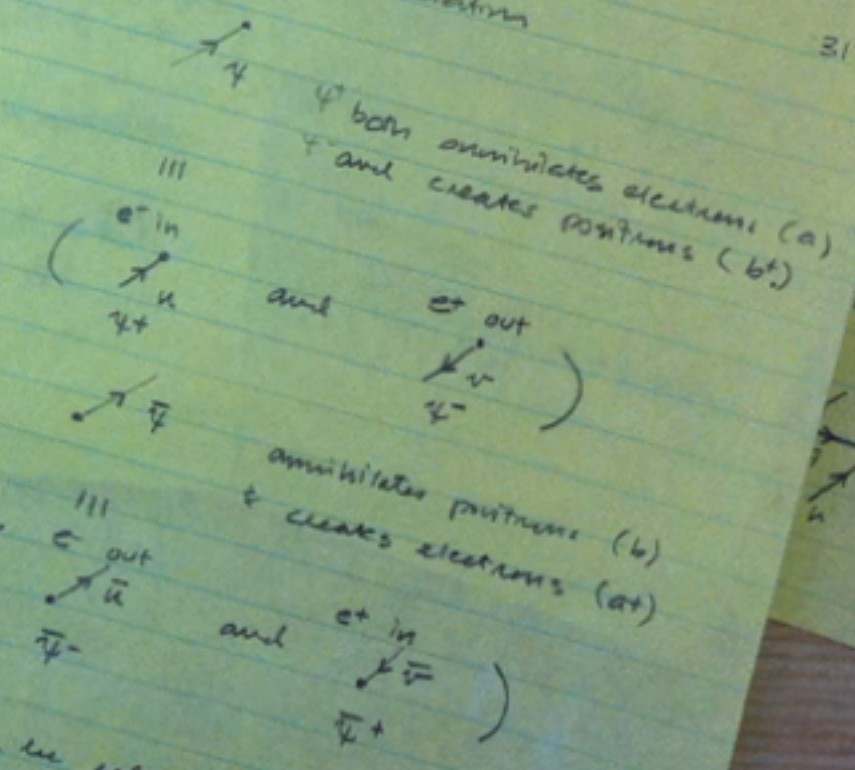 31
ψ
ψ both annihilates electrons (a)
and creates positrons (b+)
|||
( e- in u ψ+ and e+ out v ψ- )
ψ̄
annihilates positrons (b)
& creates electrons (a+)
|||
e- out ū ψ̄- and e+ in v̄ ψ̄+ )
u